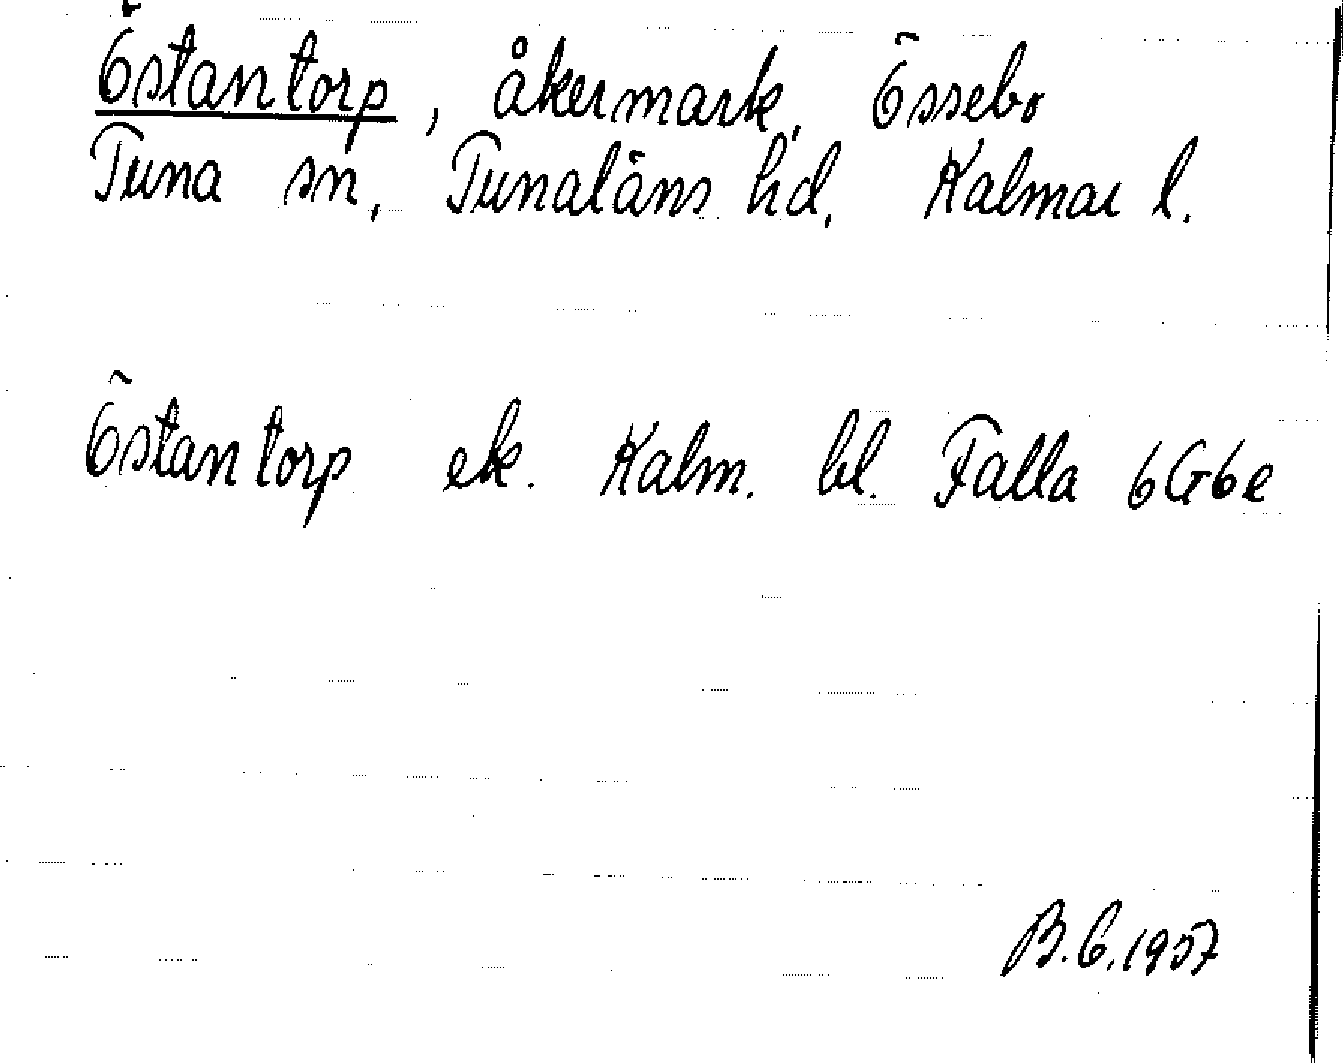 Östantorp, åkermark, Össebo
Tuna sn, Tunaläns hd, Kalmar l.
Östantorp ek. Kalm. bl. Falla 6G6e
B.C. 1957